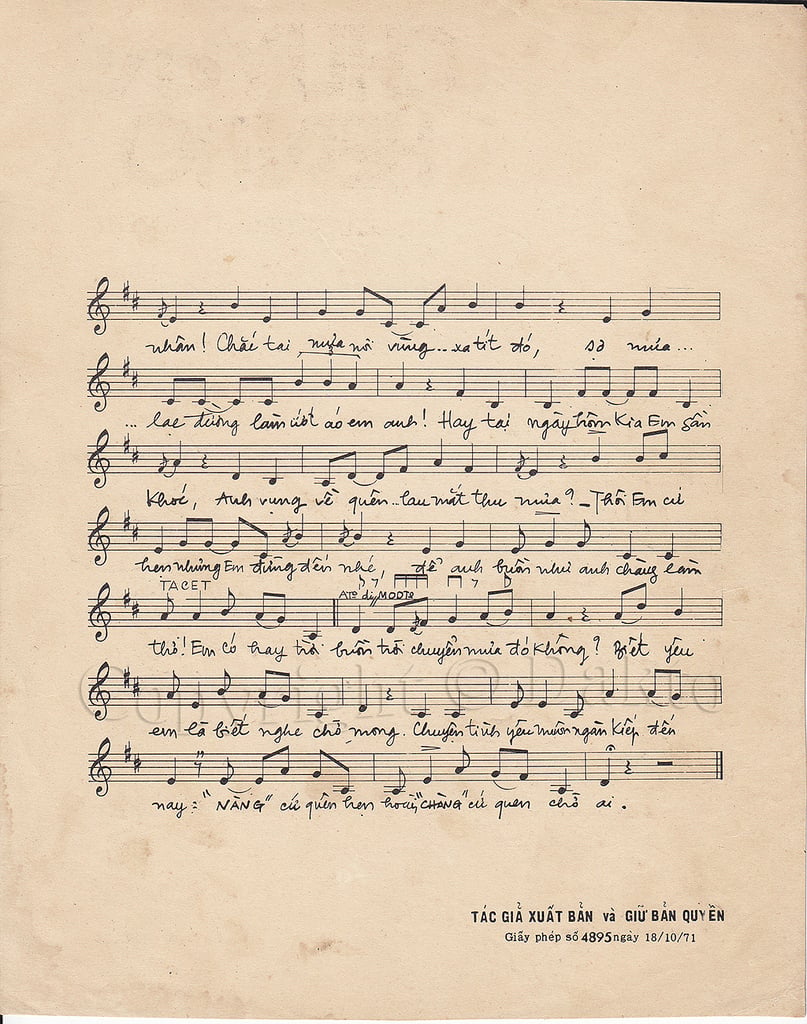 nhân! Chắc tại mưa nơi vùng.. xa tít đó, sợ mưa...
... lạc đường làm ướt áo em anh! Hay tại ngày hôm Kia Em gần
Khóc, Anh vụng về quên.. lau mắt thu mưa? - Thôi Em cứ
hẹn nhưng Em đừng đến nhé, để anh buồn như anh chàng làm
TACET ATº di MODTO
thơ! Em có hay trời buồn trời chuyển mưa đó không? Biết yêu
em là biết nghe chờ mong. Chuyện tình yêu muôn ngàn Kiếp đến
nay: "NÀNG" cứ quên hẹn hoài, "CHÀNG" cứ quen chờ ai.
Copyright © Dakto
TÁC GIẢ XUẤT BẢN và GIỮ BẢN QUYỀN
Giấy phép số 4895 ngày 18/10/71